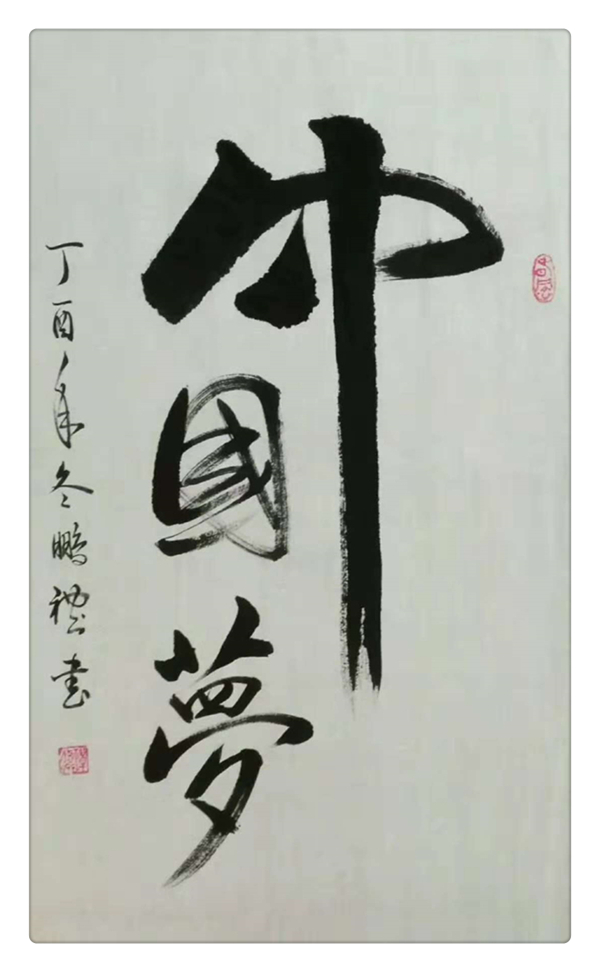 中國夢
丁酉年冬鵬禮書